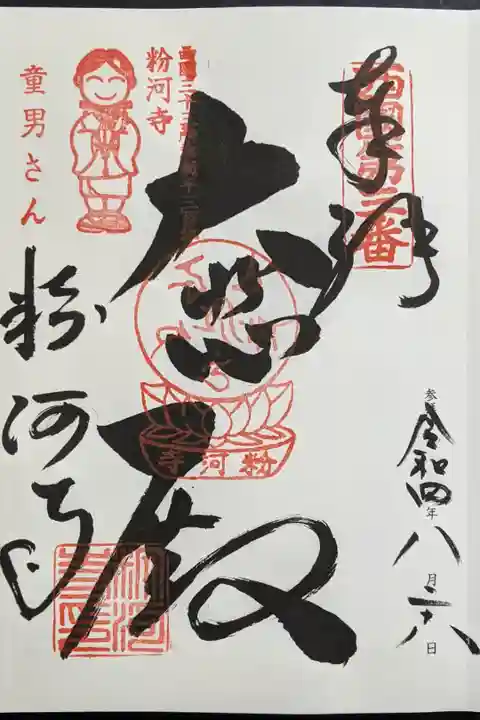 奉拝
西国第三番
参
令和四年八月
日
大悲殿
粉河寺
粉河寺
童男さん
粉河寺